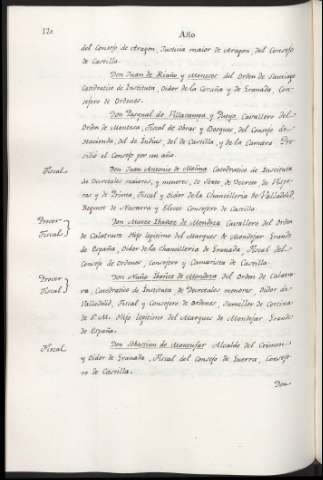 120
Año
del Consejo de Aragon, Justicia maior de Aragon, del Consejo
de Castilla.
Don Juan de Riaño y Meneses del Orden de Santiago
Catedratico de Instituta, Oidor de la Coruña y de Granada, Con-
sejero de Ordenes.
Don Pasqual de Villacampa y Pueyo, Cavallero del
Orden de Montesa, Fiscal de Obras y Bosques, del Consejo de
Hacienda, del de Indias, del de Castilla, y de la Camara. Pre-
sidio el Consejo por un año.
Fiscal
Don Juan Antonio de Molina Catedratico de Instituta
de Decretales maiores, y menores, de Sexto, de Decreto de Vispe-
ras y de Prima, Fiscal y Oidor de la Chancilleria de Valladolid
Regente de Navarra y Electo Consejero de Castilla.
Procer
Fiscal
Don Mateo Ibañez de Mendoza Cavallero del Orden
de Calatrava Hijo legitimo del Marques de Mondejar Grande
de España, Oidor de la Chancilleria de Granada, Fiscal del
Consejo de Ordenes, Consejero y Camarista de Castilla.
Procer
Fiscal
Don Nuño Ibañez de Mendoza del Orden de Calatra-
va, Catedratico de Instituta de Decretales menores, Oidor de
Valladolid, Fiscal y Consejero de Ordenes, Sumiller de Cortina
de S. M. Hijo legitimo del Marques de Mondejar, Grande
de España.
Fiscal
Don Sebastian de Montufar Alcalde del Crimen
y Oidor de Granada, Fiscal del Consejo de Guerra, Conseje-
ro de Castilla.
Don